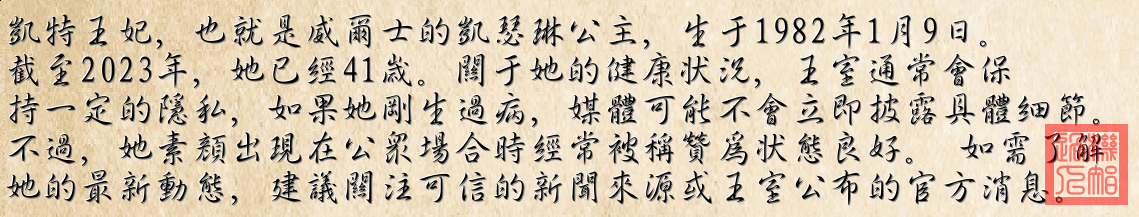 凱特王妃，也就是威爾士的凱瑟琳公主，生于1982年1月9日。
截至2023年，她已經41歲。關于她的健康狀況，王室通常會保
持一定的隱私，如果她剛生過病，媒體可能不會立即披露具體細節。
不過，她素顏出現在公眾場合時經常被稱贊爲狀態良好。 如需了解
她的最新動態，建議關注可信的新聞來源或王室公布的官方消息。